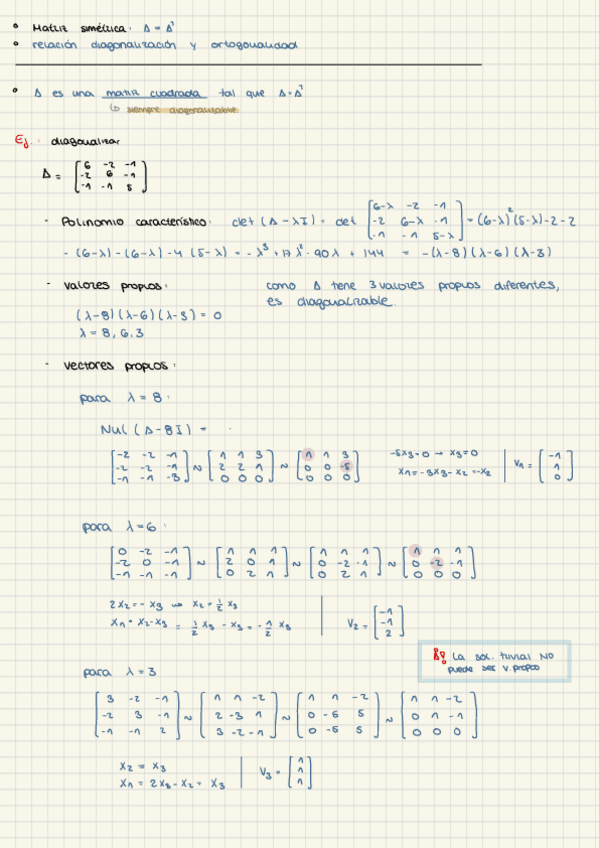 • Matriz simétrica: A = Aᵀ
• relación diagonalización y ortogonalidad
• A es una matriz cuadrada tal que A = Aᵀ
↳ siempre diagonalizable
Ej.: diagonalizar
A = [6 -2 -1; -2 6 -1; -1 -1 5]
- Polinomio característico: det (A - λI) = det [6-λ -2 -1; -2 6-λ -1; -1 -1 5-λ] = (6-λ)² (5-λ) - 2 - 2
- (6-λ) - (6-λ) - 4 (5-λ) = - λ³ + 17 λ² - 90 λ + 144 = - (λ-8) (λ-6) (λ-3)
- valores propios:
(λ-8) (λ-6) (λ-3) = 0
λ = 8, 6, 3
como A tene 3 valores propios diferentes,
es diagonalizable.
- vectores propios:
para λ = 8:
Nul (A - 8I) =
[-2 -2 -1; -2 -2 -1; -1 -1 -3] ~ [1 1 3; 2 2 1; 0 0 0] ~ [1 1 3; 0 0 -5; 0 0 0]
-5x₃ = 0 → x₃ = 0
x₁ = -3x₃ - x₂ = -x₂
V₁ = [-1; 1; 0]
para λ = 6:
[0 -2 -1; -2 0 -1; -1 -1 -1] ~ [1 1 1; 2 0 1; 0 2 1] ~ [1 1 1; 0 -2 -1; 0 2 1] ~ [1 1 1; 0 -2 -1; 0 0 0]
2x₂ = - x₃ → x₂ = ½ x₃
x₁ = x₂ - x₃ = ½ x₃ - x₃ = - ½ x₃
V₂ = [-1; -1; 2]
La sol. trivial NO
puede ser v propio
para λ = 3
[3 -2 -1; -2 3 -1; -1 -1 2] ~ [1 1 -2; 2 -3 1; 3 -2 -1] ~ [1 1 -2; 0 -5 5; 0 -5 5] ~ [1 1 -2; 0 1 -1; 0 0 0]
x₂ = x₃
x₁ = 2x₃ - x₂ = x₃
V₃ = [1; 1; 1]